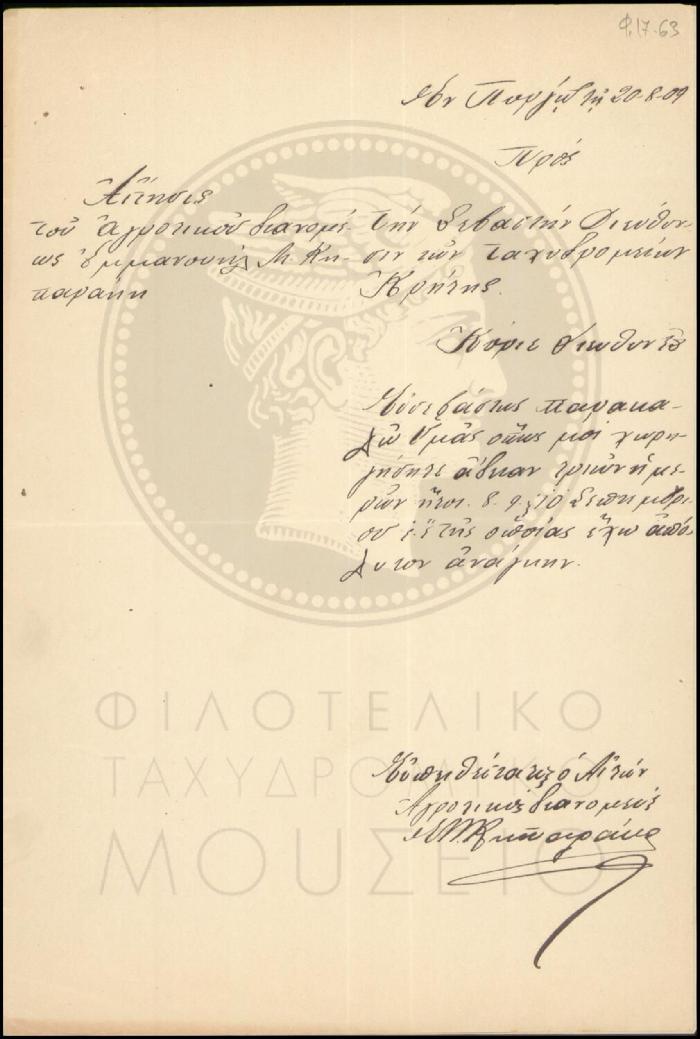 Φ.17-63
Ἐν Πύργῳ τῇ 20-8-09
Πρός
Αἴτησις
τοῦ ἀγροτικοῦ διανομέ-
ως Ἐμμανουὴλ Μ. Κη-
παράκη
τὴν Σεβαστὴν Διεύθυν-
σιν τῶν Ταχυδρομείων
Κρήτης.
Κύριε Διευθυντά
Εὐσεβάστως παρακα-
λῶ Ὑμᾶς ὅπως μοὶ χορη-
γήσητε ἄδειαν τριῶν ἡμε-
ρῶν ἤτοι 8. 9. 10 Σεπτεμβρί-
ου ἐ.ἔ τῆς ὁποίας ἔχω ἀπό-
λυτον ἀνάγκην.
Εὐπειθέστατος ὁ Αἰτῶν
Ἀγροτικὸς διανομεὺς
ΦΙΛΟΤΕΛΙΚΟ
ΤΑΧΥΔΡΟΜΙΚΟ
ΜΟΥΣΕΙΟ